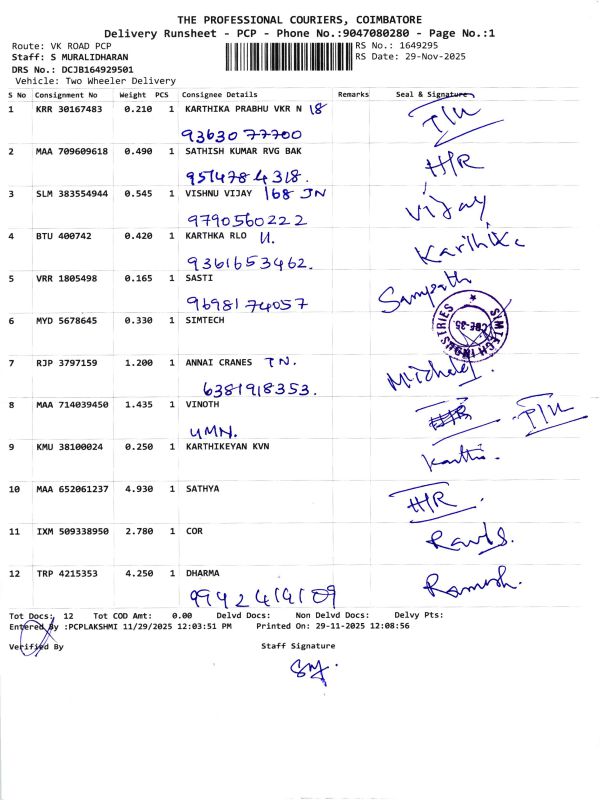 THE PROFESSIONAL COURIERS, COIMBATORE
Delivery Runsheet - PCP - Phone No.:9047080280 - Page No.:1
Route: VK ROAD PCP RS No.: 1649295
Staff: S MURALIDHARAN RS Date: 29-Nov-2025
DRS No.: DCJB164929501
Vehicle: Two Wheeler Delivery
S No Consignment No Weight PCS Consignee Details Remarks Seal & Signature
1 KRR 30167483 0.210 1 KARTHIKA PRABHU VKR N 18
93630 77700
2 MAA 709609618 0.490 1 SATHISH KUMAR RVG BAK H/R
9514784318.
3 SLM 383554944 0.545 1 VISHNU VIJAY 168 JN Vijay
9790560222
4 BTU 400742 0.420 1 KARTHKA RLO Karthika
9361653462.
5 VRR 1805498 0.165 1 SASTI Sampath
9698174057
6 MYD 5678645 0.330 1 SIMTECH SIMTECH INDUSTRIES CBE-35.
7 RJP 3797159 1.200 1 ANNAI CRANES TN. Michael.
6381918353.
8 MAA 714039450 1.435 1 VINOTH
UMN.
9 KMU 38100024 0.250 1 KARTHIKEYAN KVN Karthi.
10 MAA 652061237 4.930 1 SATHYA H/R.
11 IXM 509338950 2.780 1 COR
12 TRP 4215353 4.250 1 DHARMA Ramesh.
Tot Docs: 12 Tot COD Amt: 0.00 Delvd Docs: Non Delvd Docs: Delvy Pts:
Entered By :PCPLAKSHMI 11/29/2025 12:03:51 PM Printed On: 29-11-2025 12:08:56
Verified By Staff Signature